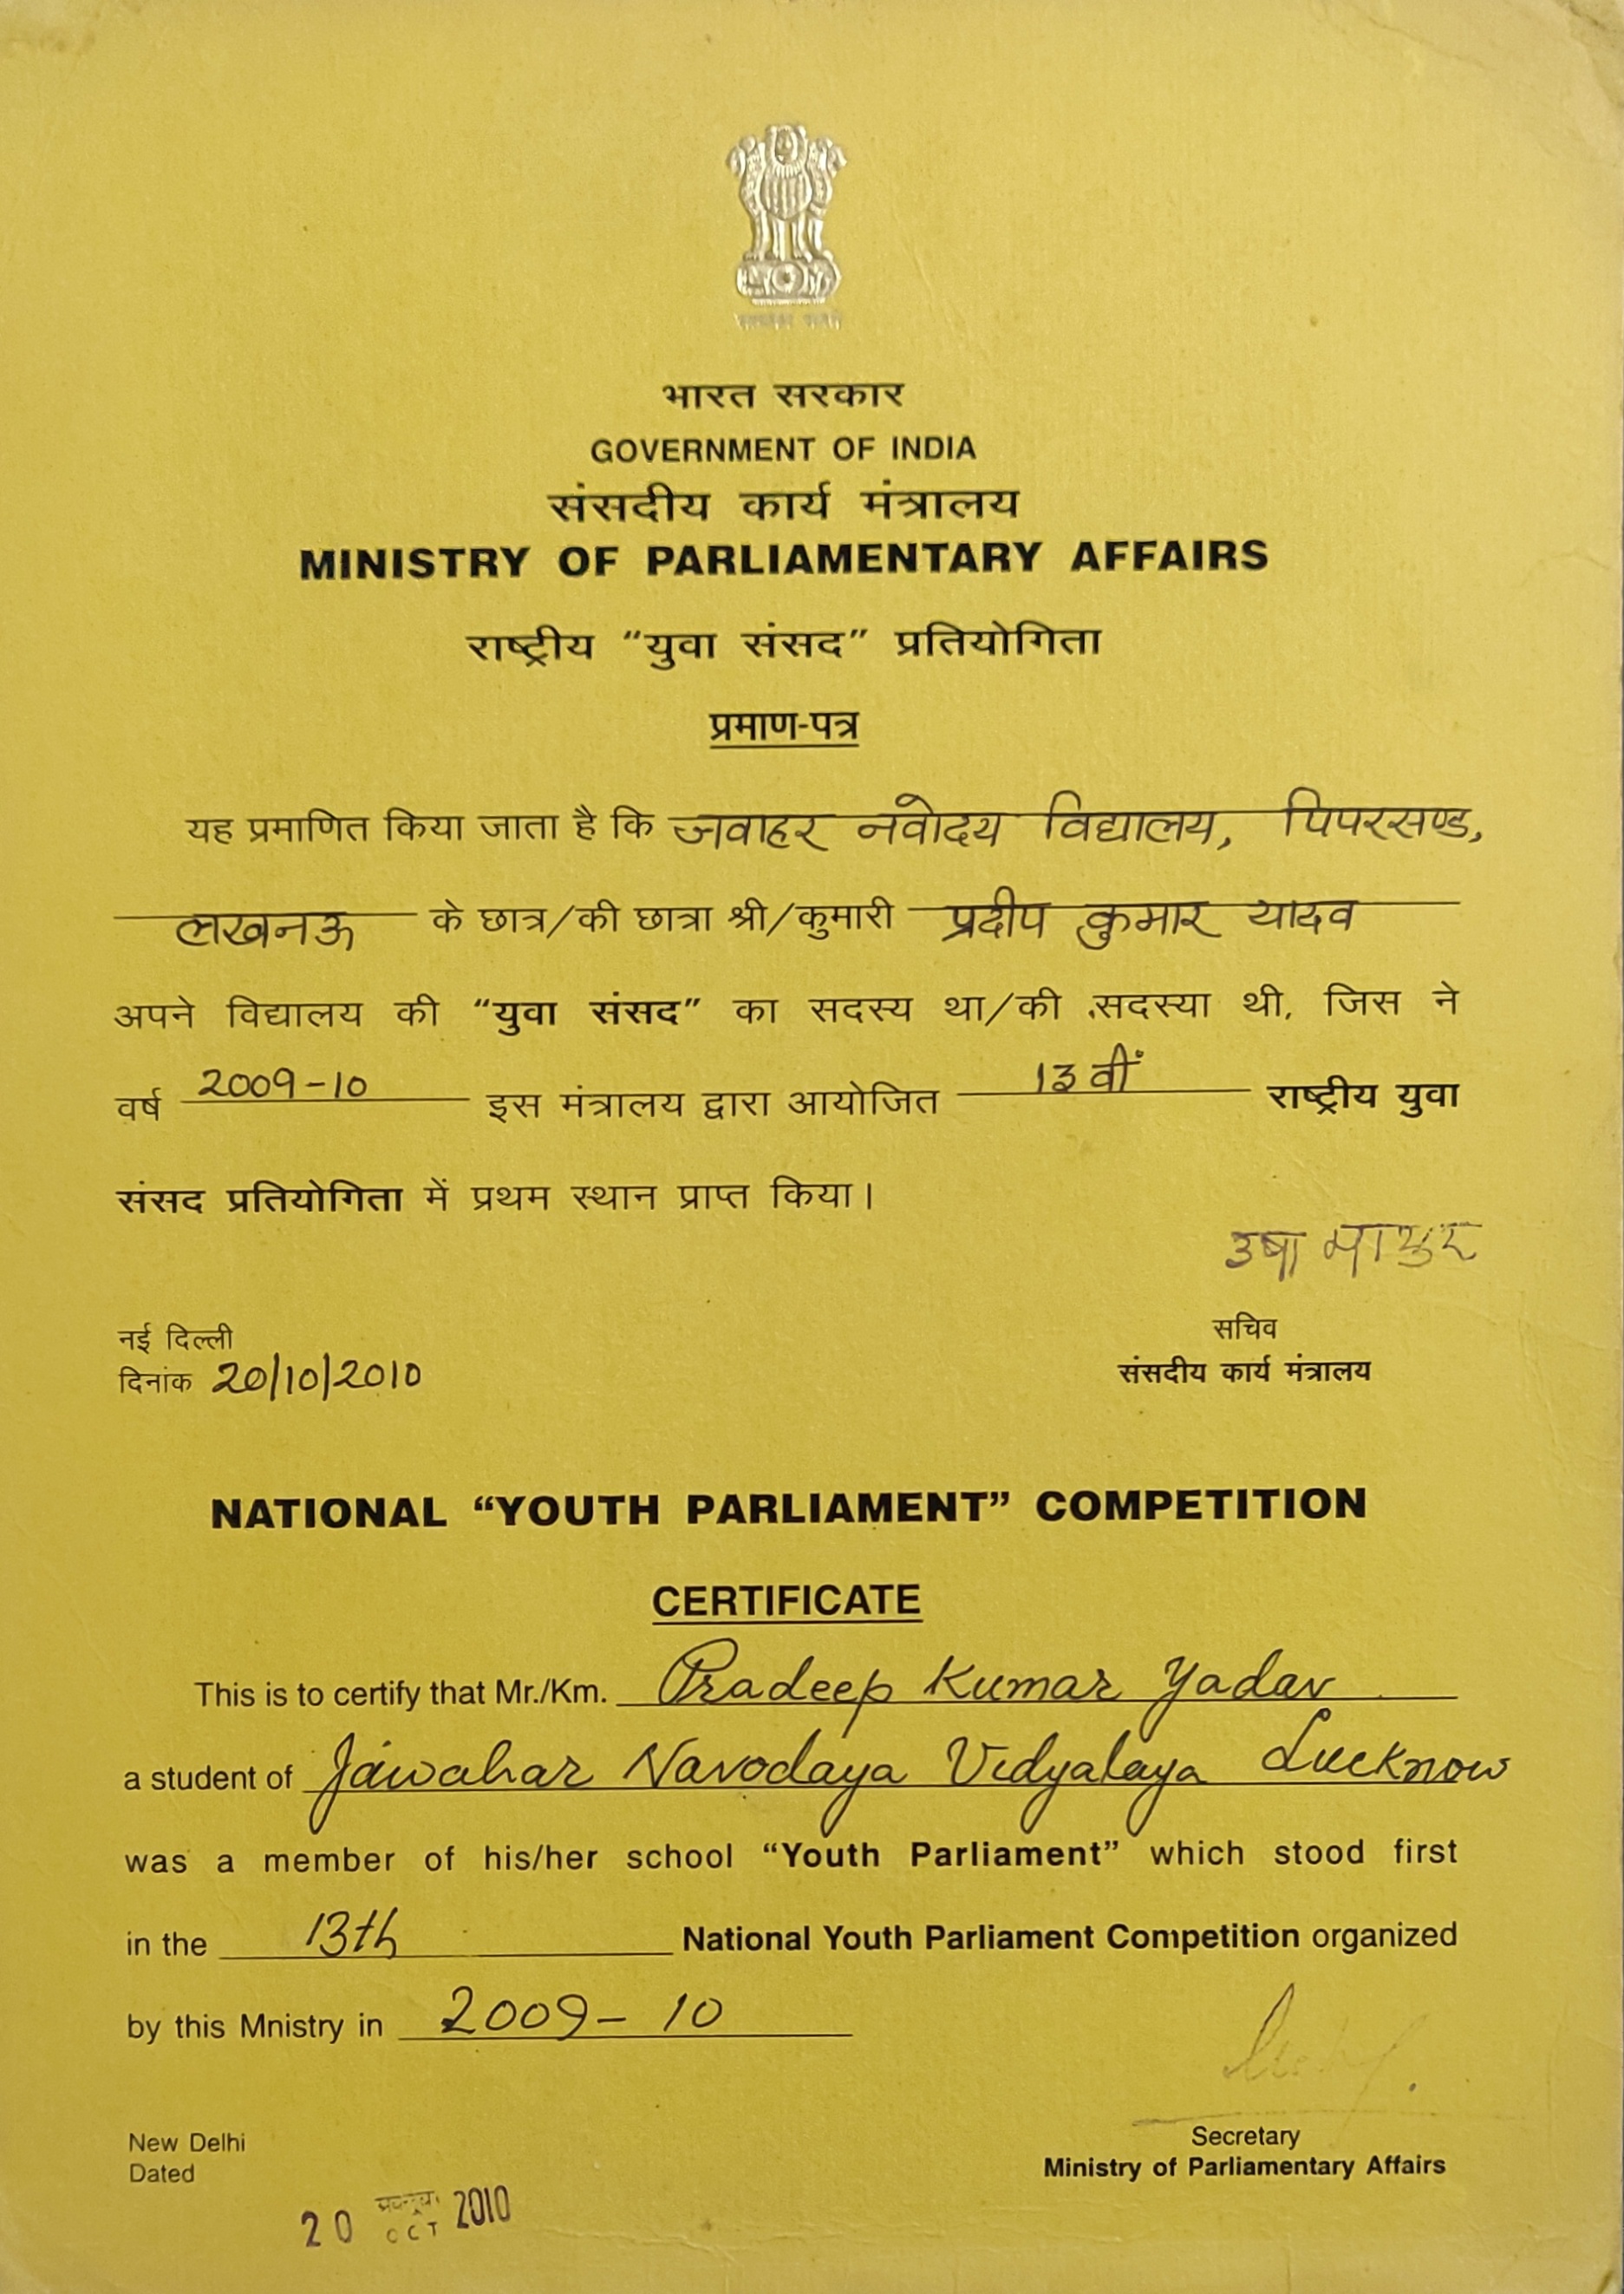 भारत सरकार
GOVERNMENT OF INDIA
संसदीय कार्य मंत्रालय
MINISTRY OF PARLIAMENTARY AFFAIRS
राष्ट्रीय “युवा संसद” प्रतियोगिता
प्रमाण-पत्र
यह प्रमाणित किया जाता है कि जवाहर नवोदय विद्यालय, पिपरसण्ड,
लखनऊ के छात्र/की छात्रा श्री/कुमारी प्रदीप कुमार यादव
अपने विद्यालय की “युवा संसद” का सदस्य था/की सदस्या थी, जिस ने
वर्ष 2009-10 इस मंत्रालय द्वारा आयोजित 13वीं राष्ट्रीय युवा
संसद प्रतियोगिता में प्रथम स्थान प्राप्त किया।
उषा माथुर
नई दिल्ली
दिनांक 20/10/2010
सचिव
संसदीय कार्य मंत्रालय
NATIONAL “YOUTH PARLIAMENT” COMPETITION
CERTIFICATE
This is to certify that Mr./Km. Pradeep Kumar Yadav
a student of Jawahar Navodaya Vidyalaya Lucknow
was a member of his/her school “Youth Parliament” which stood first
in the 13th National Youth Parliament Competition organized
by this Mnistry in 2009-10
New Delhi
Dated
20 OCT 2010
Secretary
Ministry of Parliamentary Affairs